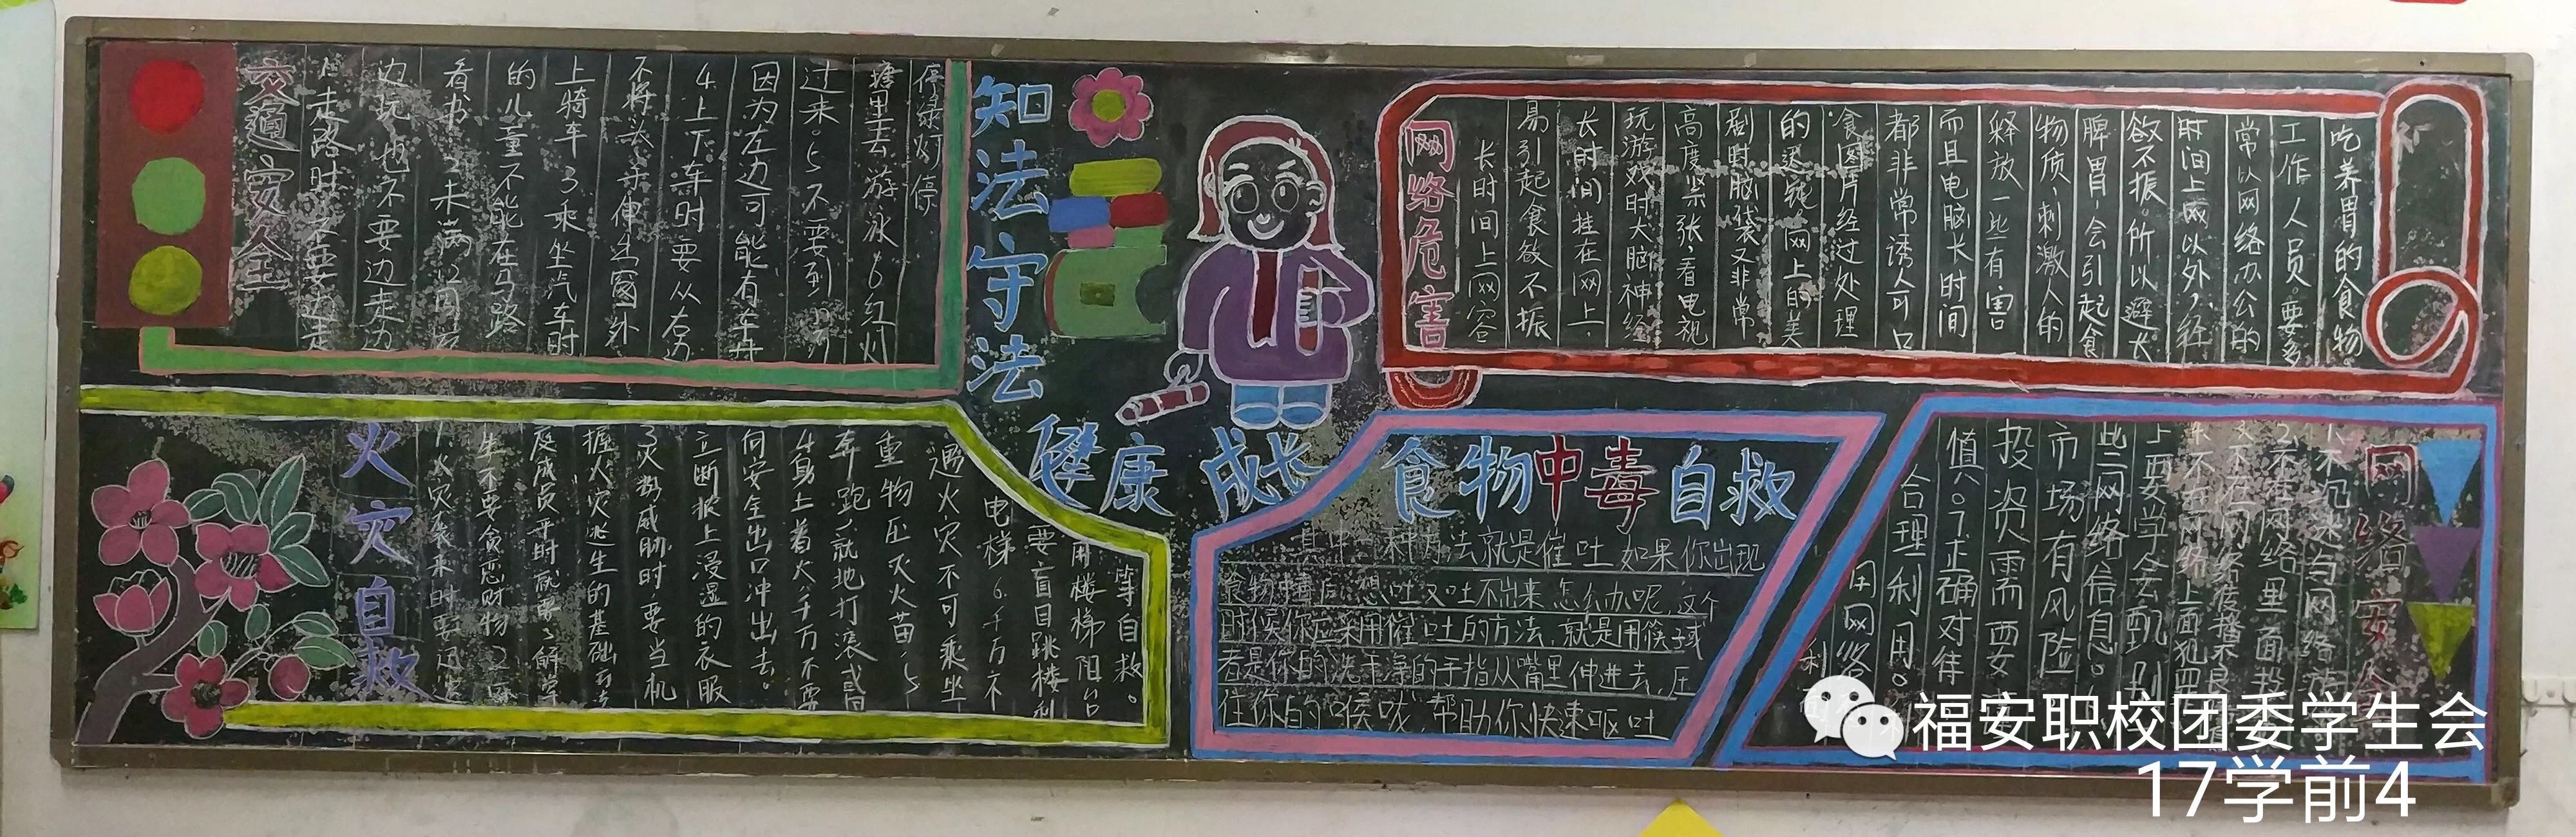 交通安全
1.走路时不要边走
边玩也不要边走边
看书2未满12周岁
的儿童不能在马路
上骑车3乘坐汽车时
不将头手伸出窗外
4上下车时要从右边
因为左边可能有车
过来。5不要到
塘里去游泳6红灯
停绿灯停
知法守法
健康成长
网络危害
长时间上网容
易引起食欲不振
长时间挂在网上，
玩游戏时大脑神经
高度紧张，看电视
剧时脑袋又非常
的迟钝，网上的美
食图片经过处理
都非常诱人可口
而且电脑长时间
释放一些有害
物质，刺激人的
脾胃，会引起食
欲不振。所以避长
时间上网以外，经
常以网络办公的
工作人员。要多
吃养胃的食物。
火灾自救
1.火灾袭来时要迅
生不要贪恋财物2
庭成员平时就要了解掌
握火灾逃生的基础方法
3火势威胁时，要当机
立断披上浸湿的衣服
向安全出口冲出去。
4身上着火，千万不要
奔跑，就地打滚或用
重物压灭火苗，5
遇火灾不可乘坐
电梯6千万不
要盲目跳楼利
用楼梯阳台
等自救。
食物中毒自救
其中一种方法就是催吐如果你出现
食物中毒后，想吐又吐不出来怎么办呢，这个
时候你应采用催吐的方法，就是用筷子或
者是你的洗干净的手指从嘴里伸进去，压
住你的喉咙，帮助你快速呕吐
网络安全
不沉迷与网络
2不在网络里面
不在网络传播不良
不在网络上面犯
上要学会甄别
些网络信息。
市场有风险
投资需要
慎。7正确对待
合理利用。
用网络
利
福安职校团委学生会
17学前4